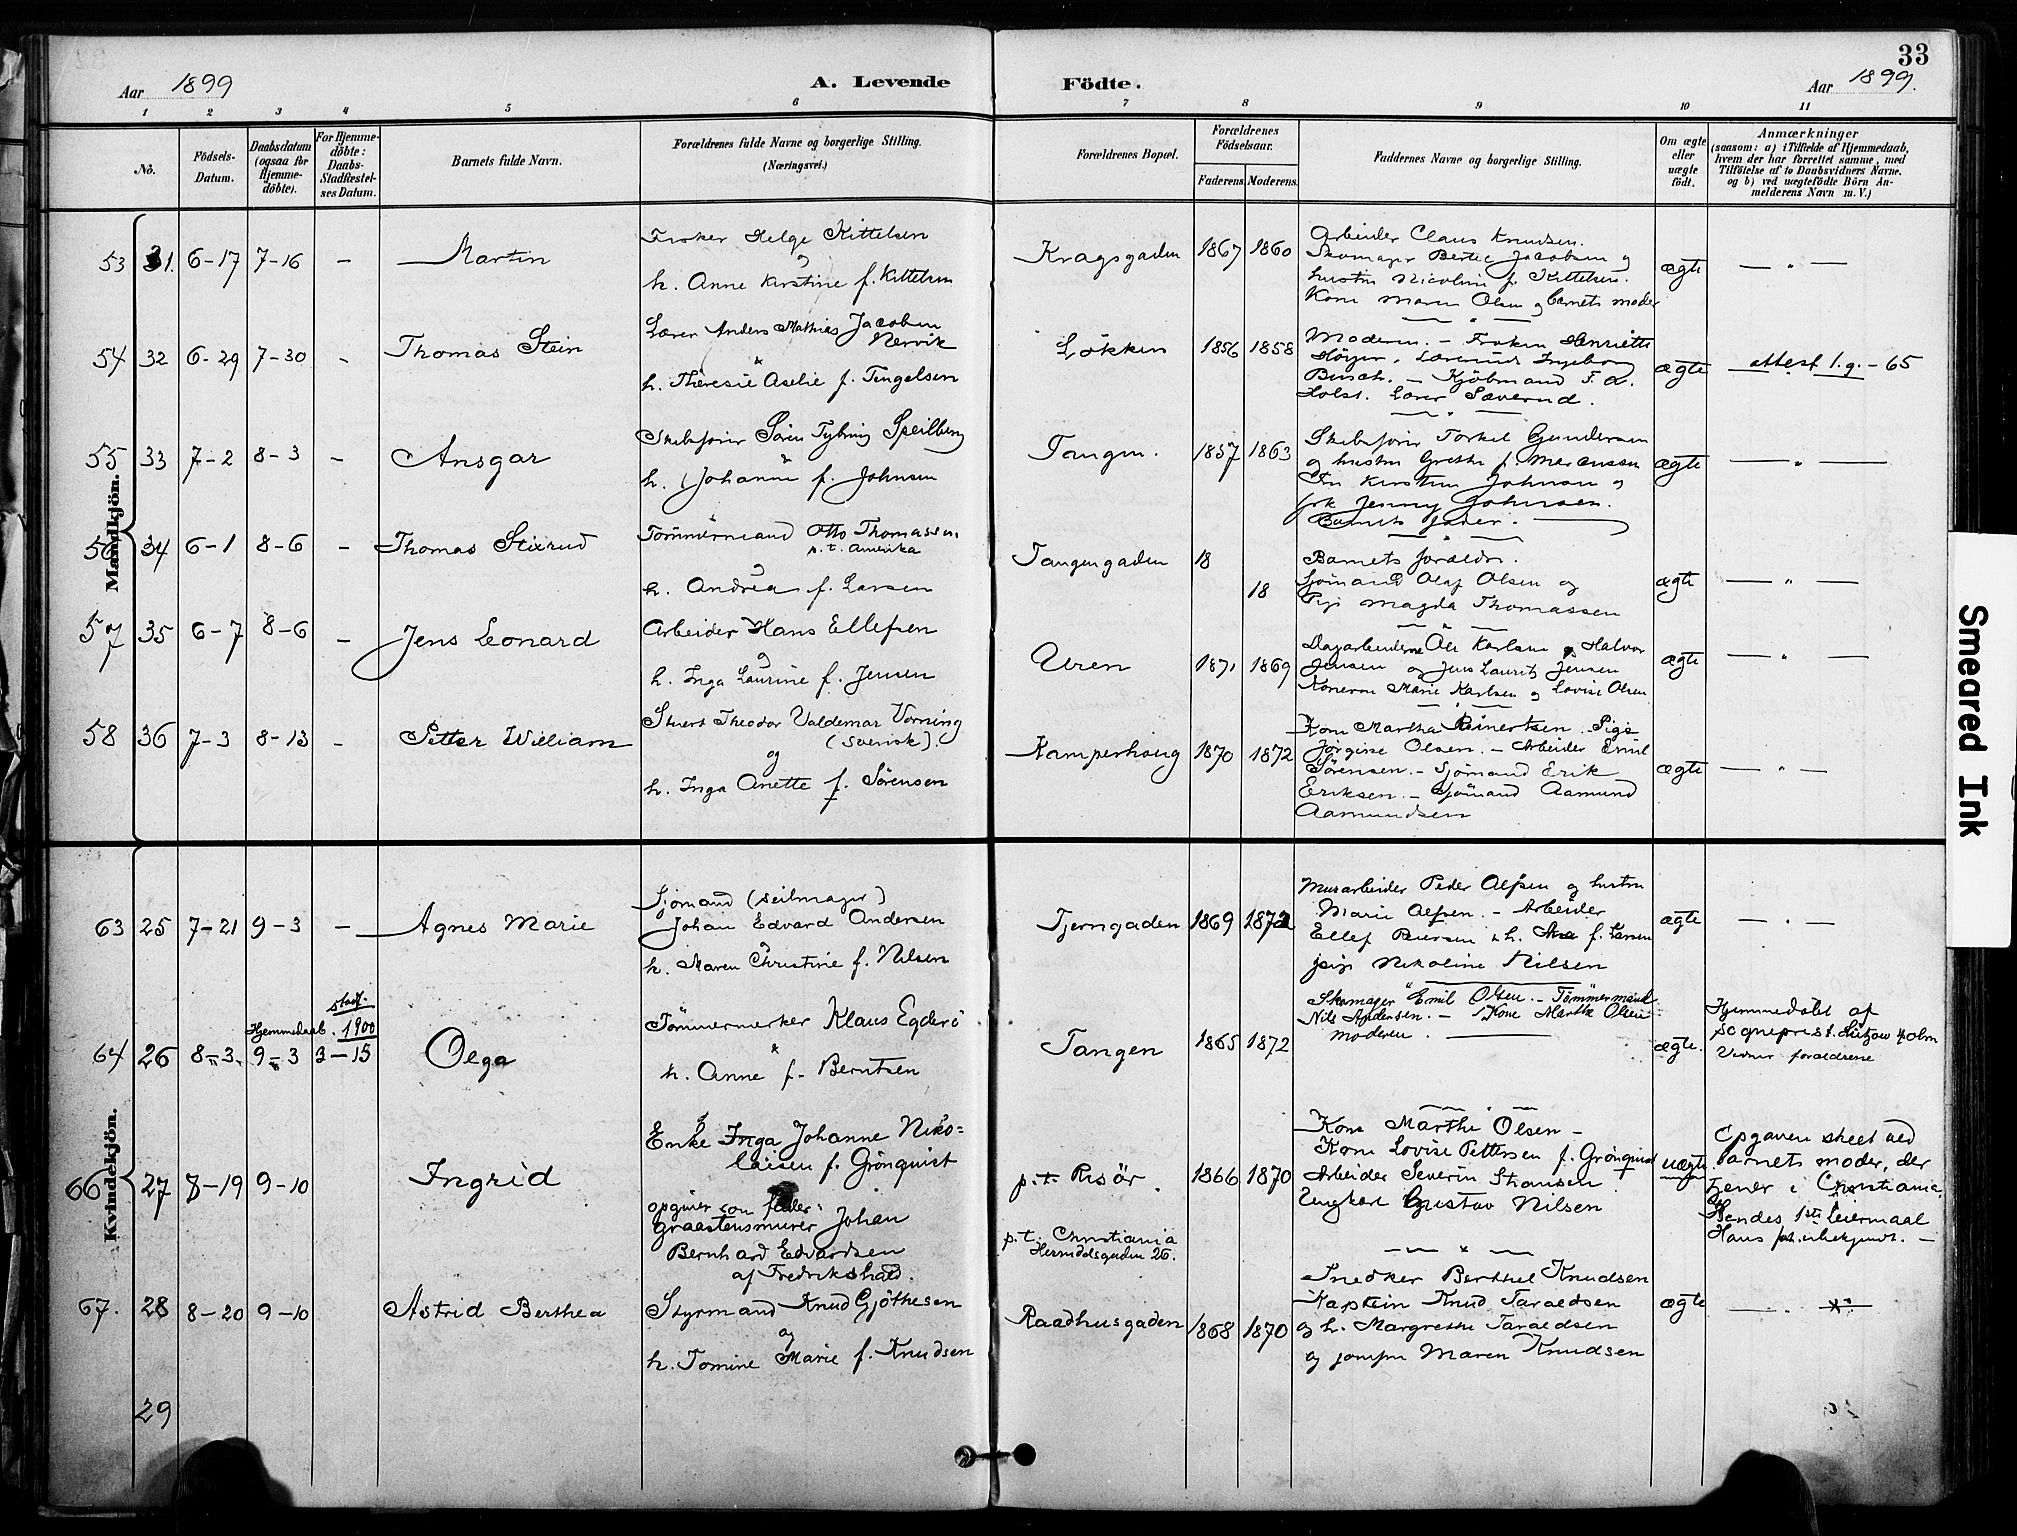 33
Aar 1899
A. Levende
Födte.
Aar 1899.
1 2 3 4 5 6 7 8 9 10 11
No.
Födsels-
Datum.
Daabsdatum
(ogsaa for
Hjemme-
döbte).
For Hjemme-
döbte:
Daabs-
Stadfæstel-
ses Datum.
Barnets fulde Navn.
Forældrenes fulde Navne og borgerlige Stilling.
(Næringsvei.)
Forældrenes Bopæl.
Forældrenes
Födselsaar.
Faderens Moderens.
Faddernes Navne og borgerlige Stilling.
Om ægte
eller
uægte
födt.
Anmærkninger
(saasom: a) i Tilfælde af Hjemmedaab,
hvem der har forrettet samme, med
Tilföielse af to Daabsvidners Navne.
og b) ved uægtefödte Börn An-
melderens Navn m. V.)
Mandkjön.
53 31. 6-17 7-16 - Martin
Fisker Helge Kittelsen
og
h. Anne Kirstine f. Kittelsen
Kragsgaden 1867 1860
Arbeider Claus Knudsen.
Skomager Bertel Jacobsen og
hustru Nicoline f. Kittelsen.
Kone Maren Olsen og barnets moder
ægte — " —
54 32 6-29 7-30 - Thomas Stein
Lærer Anders Mathias Jacobsen
Nervik
&
h. Therese Aselie f. Tengelsen
Lökken 1856 1858
Moderen. - Fröken Henriette
Höyer, Lærerinde Ingeborg
Busch. - Kjöbmand F. A.
Holst. Lærer Sæverud.
ægte attest 1.g. - 65
55 33 7-2 8-3 - Ansgar
Skibsförer Sören Tybring Speilberg
&
h. Johanne f. Johnsen
Tangen. 1857 1863
Skibsförer Torkel Gundersen
og hustru Grethe f. Marcussen
Fru Kirstine Johnsen og
frk Jenny Johnsen.
Barnets fader.
ægte — " —
56 34 6-1 8-6 - Thomas Stixrud
Tömmermand Otto Thomassen
p.t. Amerika
og
h. Andrea f. Larsen
Tangengaden 18 18
Barnets forældre.
Sjömand Olaf Olsen og
Pige Magda Thomassen
ægte — " —
57 35 6-7 8-6 - Jens Leonard
Arbeider Hans Ellefsen
og
h. Inga Laurine f. Jensen
Uren 1871 1869
Dagarbeiderne Ole Karlsen og Halvor
Jensen og Jens Laurits Jensen
Konerne Marie Karlsen og Lovise Olsen
ægte — " —
58 36 7-3 8-13 - Petter William
Stuert Theodor Valdemar Vorning
(svensk).
og
h. Inga Anette f. Sörensen
Kamperhaug 1870 1872
Kone Martha Reinertsen. Pige
Jörgine Olsen. - Arbeider Emil
Sörensen. - Sjömand Erik
Eriksen. - Sjömand Aamund
Aamundsen
ægte — " —
Kvindekjön.
63 25 7-21 9-3 - Agnes Marie
Sjömand (seilmager)
Johan Edvard Andersen
og
h. Maren Christine f. Nilsen
Tjerngaden 1869 1872
Murarbeider Peder Alfsen og hustru
Marie Alfsen. - Arbeider
Ellef Peersen & h. f. Larsen
pige Nikoline Nilsen
ægte — " —
stadf.
Hjemmedaab. 1900
64 26 8-3 9-3 3-15 Olga
Tömmermerker Klaus Egderö
&
h. Anne f. Berntsen
Tangen 1865 1872
Skomager Emil Olsen. - Tömmermand
Nils Andersen. - Kone Marthe Olsen
moderen.
ægte.
Hjemmedöbt af
Sogneprest Lützow Holm
Vidner forældrene
66 27 8-19 9-10 Ingrid
Enke Inga Johanne Niko=
laisen f. Grönquist
opgiver som fader:
graastensmurer Johan
Bernhard Edvardsen
af Fredrikshald.
p.t. Risör
p.t. Christiania
Herredolsgaden 26.
1866 1870
Kone Marthe Olsen -
Kone Lovise Pettersen f. Grönquist
Arbeider Severin Stiansen
Ungkarl Gustav Nilsen
uægte
Opgaven skeet ved
barnets moder, der
tjener i Christiania.
Hendes 1ste Leiermaal
Hans ubekjendt. -
67. 28 8-20 9-10 Astrid Berthea
Styrmand Knud Gjöthesen
og
h. Tomine Marie f. Knudsen
Raadhusgaden 1868 1870
Snedker Berthel Knudsen
Kaptein Knud Taraldsen
og h. Margrethe Taraldsen
og jomfru Maren Knudsen
ægte — " —
29
Smeared Ink